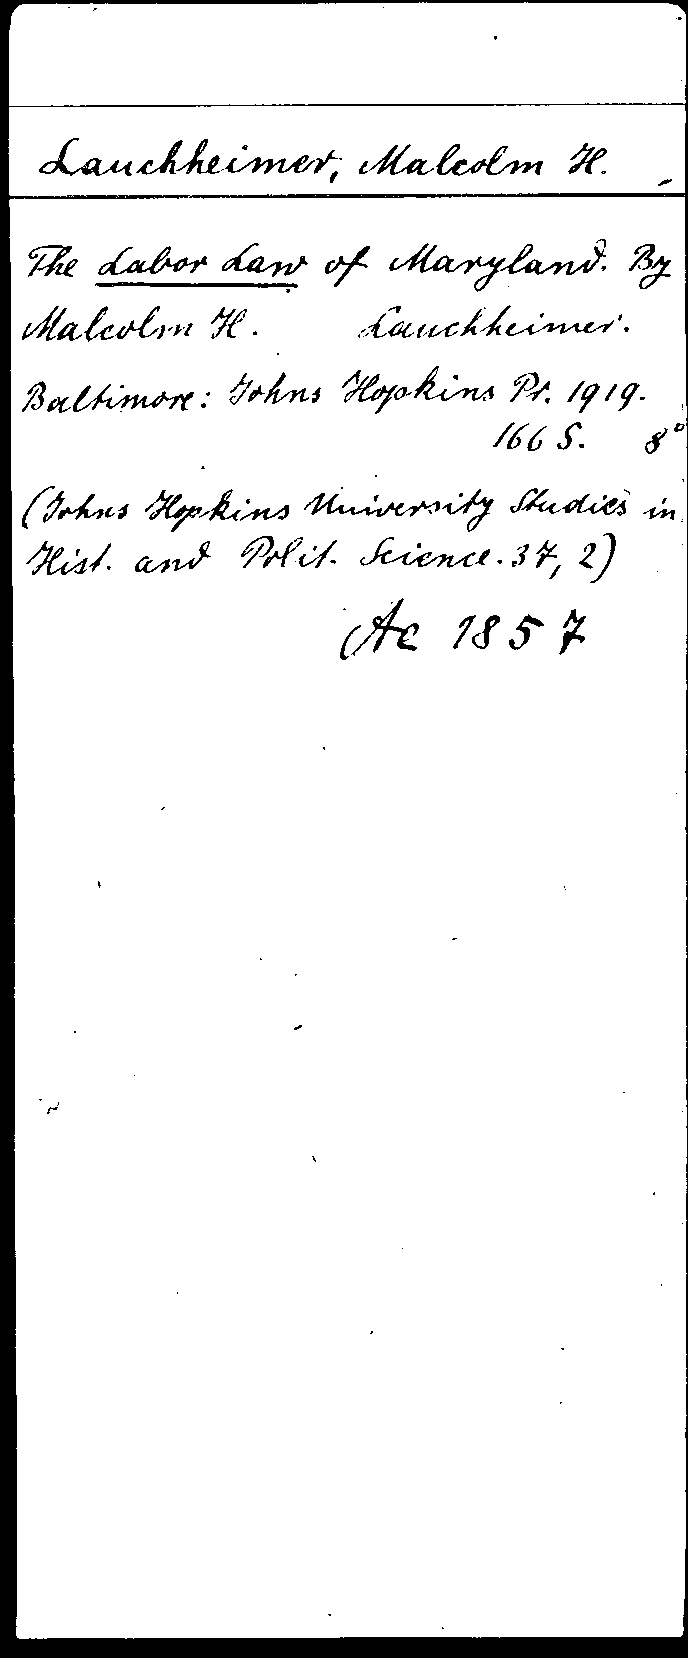 Lauchheimer, Malcolm H.
The Labor Law of Maryland. By
Malcolm H. Lauchheimer.
Baltimore: Johns Hopkins Pr. 1919.
166 S. 8°
(Johns Hopkins University Studies in
Hist. and Polit. Science. 37, 2)
Ac 1857